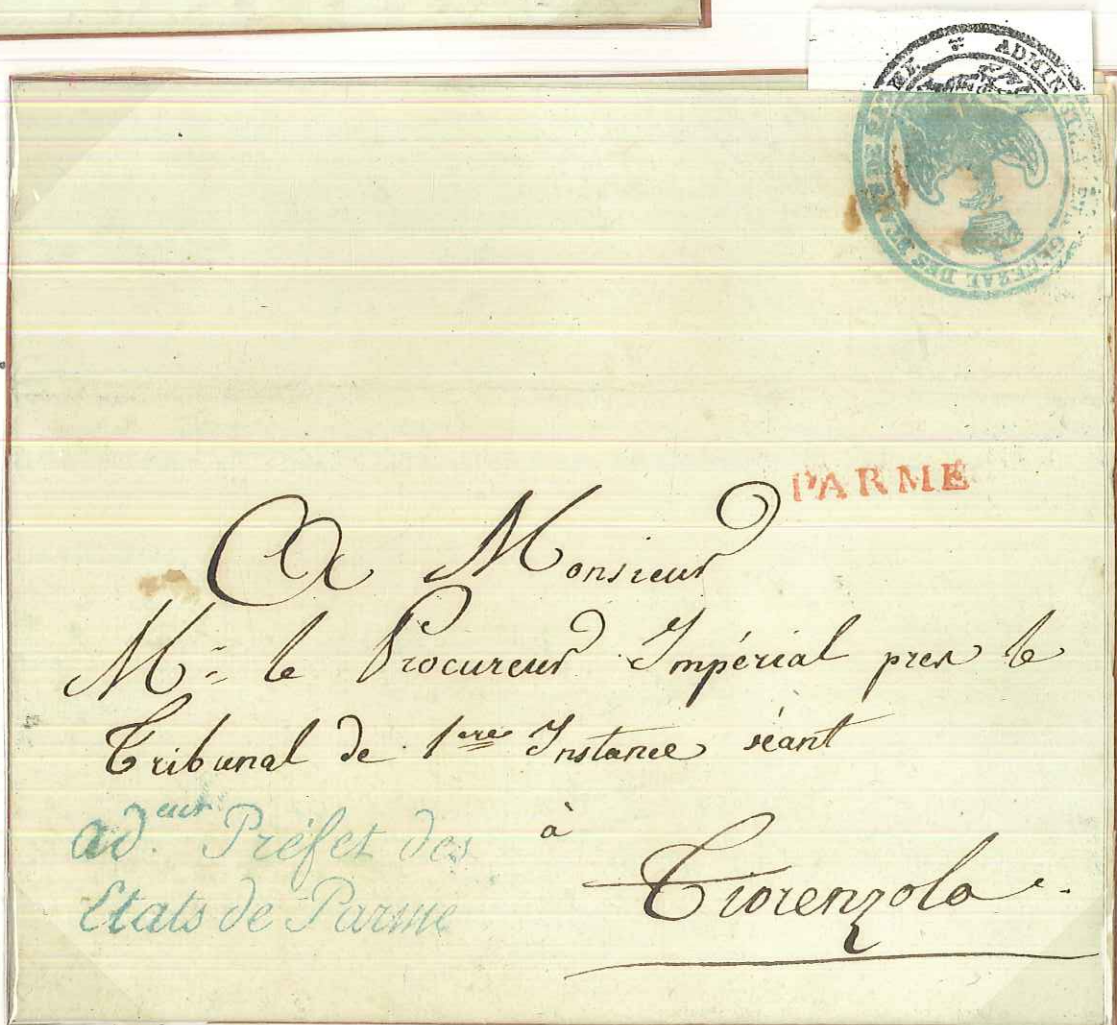 ADMINISTRATEUR GENERAL DES DE PARME
PARME
A Monsieur
Mr. le Procureur Impérial pres le
Tribunal de 1ere Instance séant
à
Fiorenzola
ad.eur Préfet des
Etats de Parme